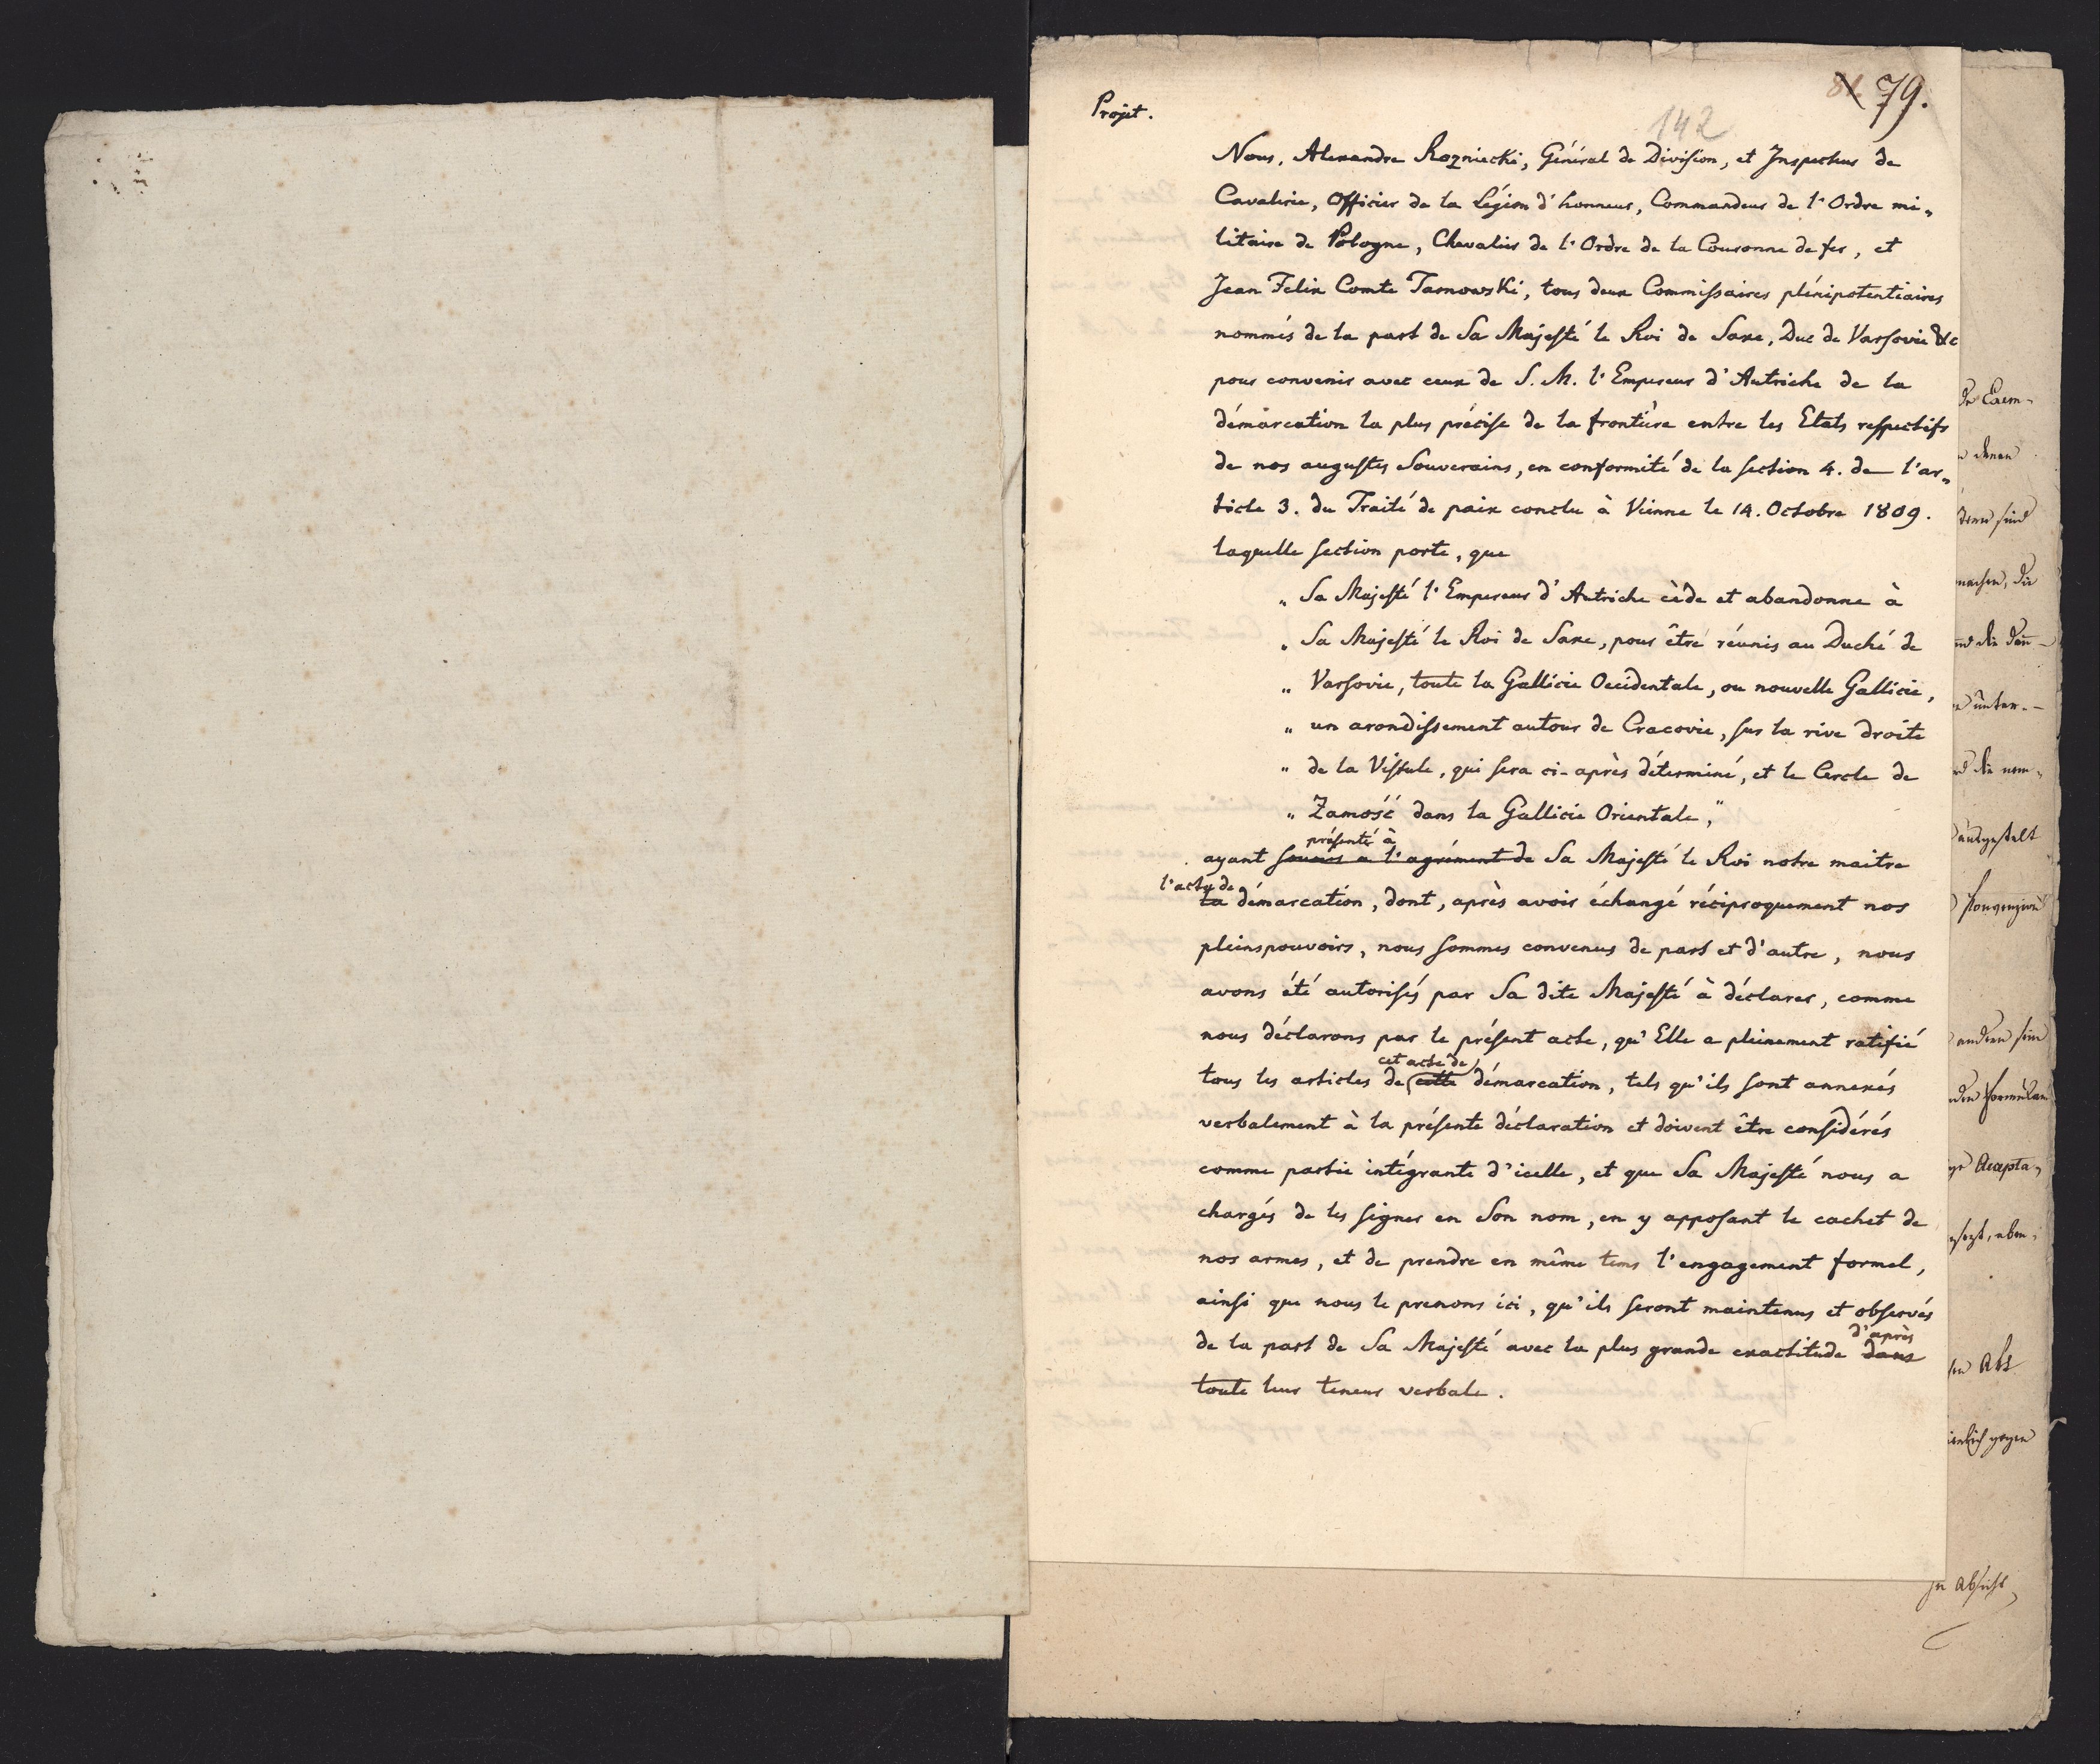 Projet.
81. 79.
142
Nous, Alexandre Rozniecki, Général de Division, et Inspecteur de
Cavalerie, Officier de la Légion d'honneur, Commandeur de l'Ordre mi„
litaire de Pologne, Chevalier de l'Ordre de la Couronne de fer, et
Jean Felix Comte Tarnowski, tous deux Commissaires plénipotentiaires
nommés de la part de Sa Majesté le Roi de Saxe, Duc de Varsovie &c
pour convenir avec ceux de S. M. l'Empereur d'Autriche de la
démarcation la plus précise de la frontière entre les Etats respectifs
de nos augustes Souverains, en conformité de la section 4. de l'ar„
ticle 3. du Traité de paix conclu à Vienne le 14. Octobre 1809.
laquelle section porte, que
„ Sa Majesté l'Empereur d'Autriche cède et abandonne à
„ Sa Majesté le Roi de Saxe, pour être réunis au Duché de
„ Varsovie, toute la Gallicie Occidentale, ou nouvelle Gallicie,
„ un arondissement autour de Cracovie, sur la rive droite
„ de la Vistule, qui sera ci-après déterminé, et le Cercle de
„ Zamość dans la Gallicie Orientale,"
présenté à
ayant soumis a l'agrément de Sa Majesté le Roi notre maitre
l'acte de
la démarcation, dont, après avoir échangé réciproquement nos
pleinspouvoirs, nous sommes convenus de part et d'autre, nous
avons été autorisés par Sa dite Majesté à déclarer, comme
nous déclarons par le présent acte, qu'Elle a pleinement ratifié
cet acte de
tous les articles de cette démarcation, tels qu'ils sont annexés
verbalement à la présente déclaration et doivent être considérés
comme partie intégrante d'icelle, et que Sa Majesté nous a
chargés de les signer en Son nom, en y apposant le cachet de
nos armes, et de prendre en même tems l'engagement formel,
ainsi que nous le prenons ici, qu'ils seront maintenus et observés
d'après
de la part de Sa Majesté avec la plus grande exactitude dans
toute leur teneur verbale.
denen
sind
machen, die
unter-
die nem„
ausgestelt
Formular
Accepta„
eben„
Akt
gegen
in Absicht